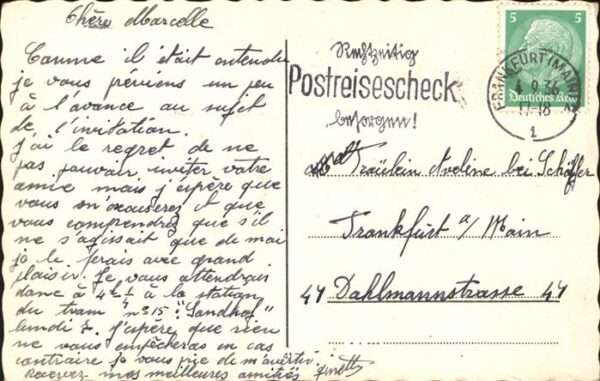 Chère Marcelle
Comme il était entendu
je vous préviens un peu
à l'avance au sujet
de l'invitation.
J'ai le regret de ne
pas pouvoir inviter votre
amie mais j'espère que
vous m'excuserez et que
vous comprendrez que s'il
ne s'agissait que de moi
je le ferais avec grand
plaisir. Je vous attendrais
donc à 4h½ à la station
du tram "n°15: "Sandhof"
lundi 7. J'espère que rien
ne vous empêchera en cas
contraire je vous prie de m'avertir.
Recevez mes meilleures amitiés Ginette
Rechtzeitig
Postreisescheck
besorgen!
5 5
Deutsches Reich
FRANKFURT (MAIN)
17-18
1
Fräulein Aveline bei Schäffer
Frankfurt a/Main
47 Dahlmannstrasse 47